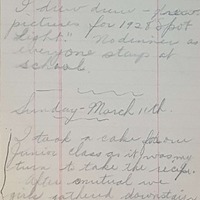 I drew
pictures for 1928 "Spot
Light." No dinner as
everyone stays at
school.
Sunday - March 11th.
I took a cake for our
Junior class as it was my
turn to take the
After we
girls gathered downstairs